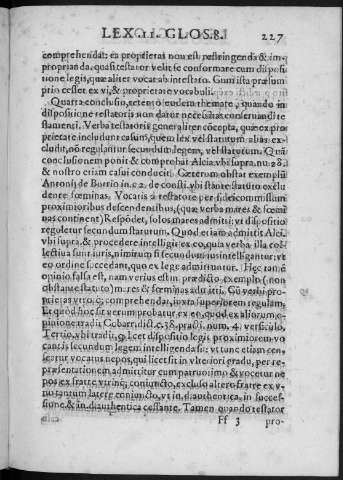 LEX. GLOS. 8. I 227
comprehendat: ea proprietas non est restringenda & im-
proprianda, quasi testator velit se conformare cum disposi
tione legis, quæ aliter vocat ab intestato. Cum ista præsum
ptio cesset ex vi, & proprietate vocabuli.
Quarta conclusio, retento eodem themate, quando in
dispositione testatoris non datur necessitas conseruandi te
stamenti. Verba testatoris generaliter cōcepta, quæ ex pro
prietate includunt casum, quem lex vel statutum alias ex-
cludit, nō regulantur secundum legem, vel statutum. Quā
conclusionem ponit & comprobat Alcia. vbi supra. nu. 28.
& nostro etiam casui conducit. Cæterom obstat exemplū
Antonij de Butrio in. c. 2. de consti. vbi stante statuto exclu
dente fœminas. Vocatis à testatore per fideicommissum
proximioribus descendentibus, (quæ verba mares & fœmi
nas continent) Respōdet, solos mares admitti: vt dispositio
reguletur secundum statutum. Quod etiam admittit Alci.
vbi supra. & procedere intelligit ex eo, quia verba illa col-
lectiua sunt iuris, nimirum si secundum ius intelligantur: vt
eo ordine succedant, quo ex lege admittuntur. Hęc tamē
opinio falsa est, nam verius est in prædicto exemplo (non
obstante statuto) mares & fœminas admitti. Cū verbi pro-
prietas vtrosq; comprehendat, iuxta superiorem regulam.
Et quòd hoc sit verum probatur ex eo, quod ex aliorum o-
pinione tradit Gobarr. dict. c. 38. praxi. num. 4. versiculo,
Tertio, vbi tradit, q̄ licet dispositio legis proximiorem vo
cantis secundum legem intelligenda sit: vt tunc etiam cen-
seatur vocatus nepos, qui licet sit in vlteriori gradu, per re-
præsentationem admittitur cum patruo: imò & vocetur ne
pos ex fratre vtrinq; coniuncto, excluso altero fratre ex v-
no tantum latere coniuncto, vt in. d. authentica, in succes-
sione, & in. d. authentica cessante. Tamen quando testator
Ff 3 pro-